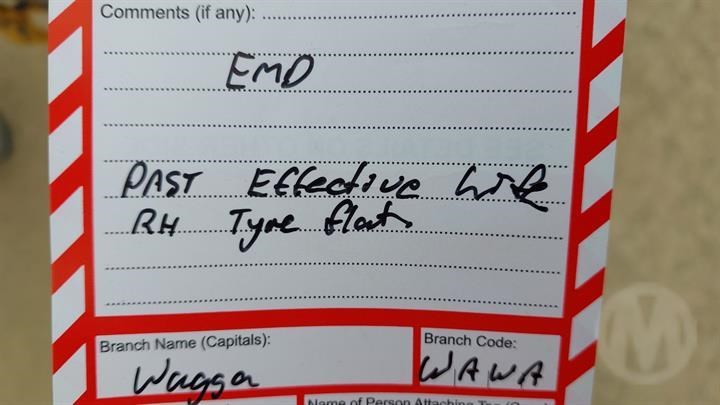 Comments (if any):
EMD
PAST Effective Life
RH Tyre flat.
Branch Name (Capitals):
Wagga
Branch Code:
WAWA
Name of Person Attaching Tag
M